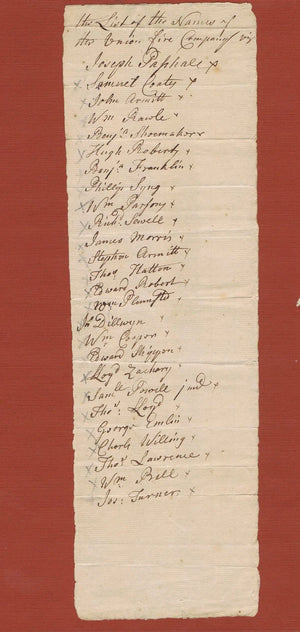 the List of the Names of
the Union fire Company viz
Joseph Paschall x
x Samuel Coates x
x John Armitt x
x Wm Rawle x
Benja. Shoemaker x
x Hugh Roberts x
Benja. Franklin x
Phillip Syng x
x Wm Parsons x
x Richd. Sewell x
James Morris x
Stephen Armitt x
x Thos Hatton x
x Edward Robert x
Wm Plumsted x
Jno Dillwyn x
x Wm Cooper x
x Edward x
x Lloyd Zachary x
x Saml. Powell jund x
x Thos. Lloyd x
George Emlin x
x Charls Willing x
x Thos Lawrence x
x Wm Bell x
Jos. Turner x